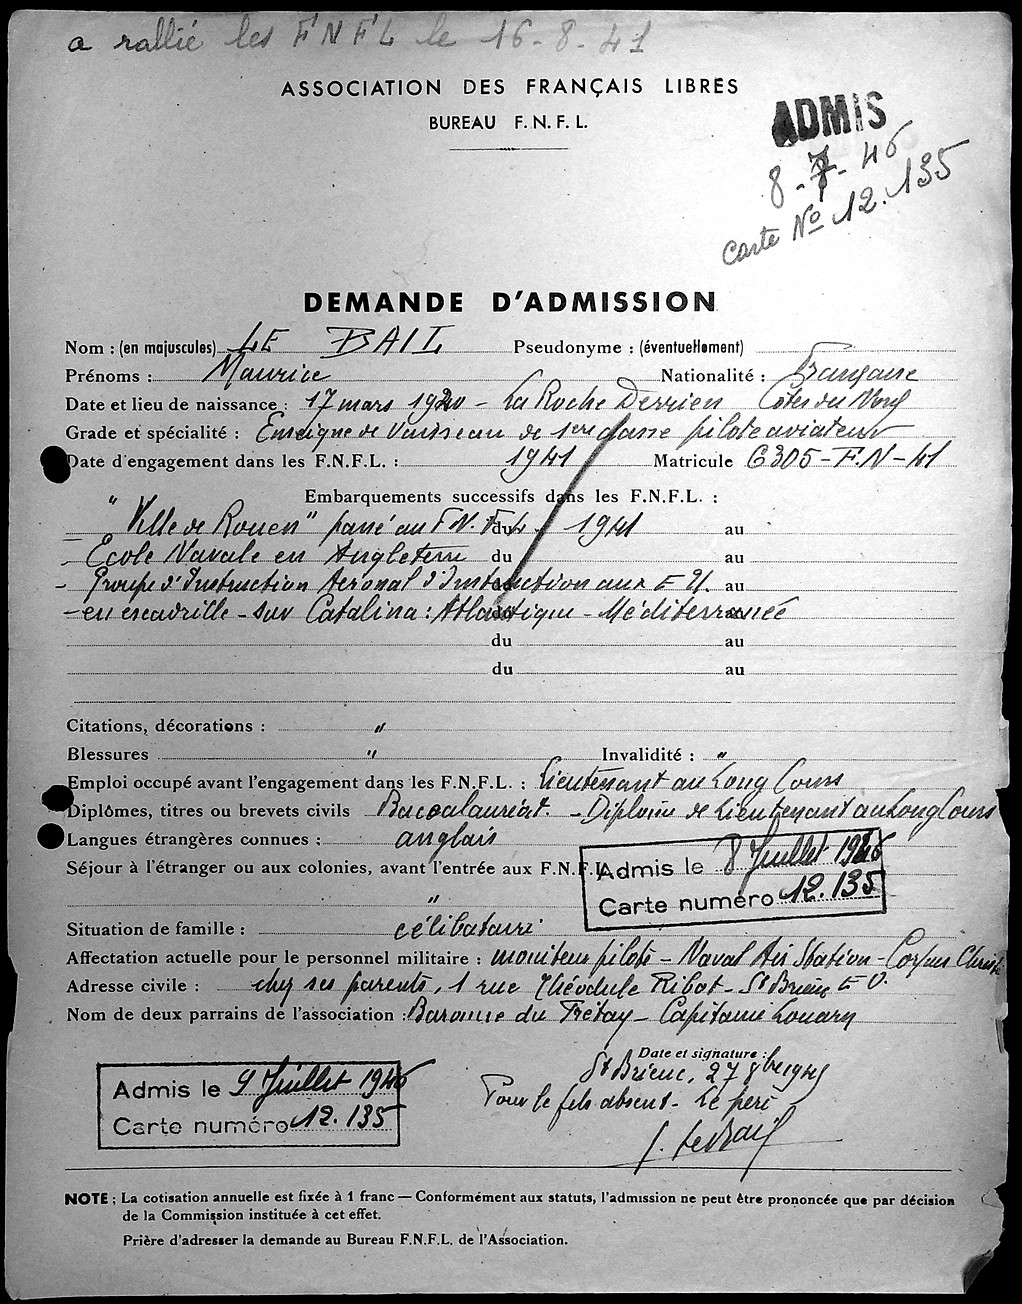 a rallié les FNFL le 16-8-41
ASSOCIATION DES FRANÇAIS LIBRES
BUREAU F.N.F.L.
ADMIS
8-7-46
Carte No 12.135
DEMANDE D'ADMISSION
Nom : (en majuscules) LE BAIL Pseudonyme : (éventuellement)
Prénoms : Maurice Nationalité : Française
Date et lieu de naissance : 17 mars 1920 - La Roche Derrien Côtes du Nord
Grade et spécialité : Enseigne de Vaisseau de 1ere classe pilote aviateur
Date d'engagement dans les F.N.F.L. : 1941 Matricule 6305-F.N-41
Embarquements successifs dans les F.N.F.L. :
"Ville de Rouen" passé au F.N.F.L. du 1941 au
- Ecole Navale en Angleterre du au
- Groupe d'Instruction Aéronal d'Instruction aux E U. au
- en escadrille - sur Catalina : Atlantique - Méditerranée
du au
du au
Citations, décorations : "
Blessures " Invalidité : "
Emploi occupé avant l'engagement dans les F.N.F.L. : Lieutenant au Long Cours
Diplômes, titres ou brevets civils Baccalauréat. - Diplôme de Lieutenant au Long Cours
Langues étrangères connues : anglais
Séjour à l'étranger ou aux colonies, avant l'entrée aux F.N.F.L.
"
Admis le 8 Juillet 1946
Carte numéro 12.135
Situation de famille : célibataire
Affectation actuelle pour le personnel militaire : moniteur pilote - Naval Air Station - Corpus Christi
Adresse civile : chez ses parents, 1 rue Théodule Ribot - St Brieuc
Nom de deux parrains de l'association : Baronne du Frétay - Capitaine Louarn
Date et signature :
St Brieuc, 27 8bre 1945
Pour le fils absent - Le père
J. Le Bail
Admis le 9 Juillet 1946
Carte numéro 12.135
NOTE : La cotisation annuelle est fixée à 1 franc — Conformément aux statuts, l'admission ne peut être prononcée que par décision
de la Commission instituée à cet effet.
Prière d'adresser la demande au Bureau F.N.F.L. de l'Association.